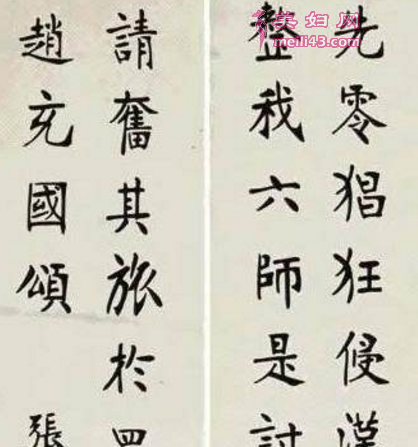 先零猖狂侵漢
整我六師是討
請奮其旅於
趙充國頌 張
美妇网
meili43.com